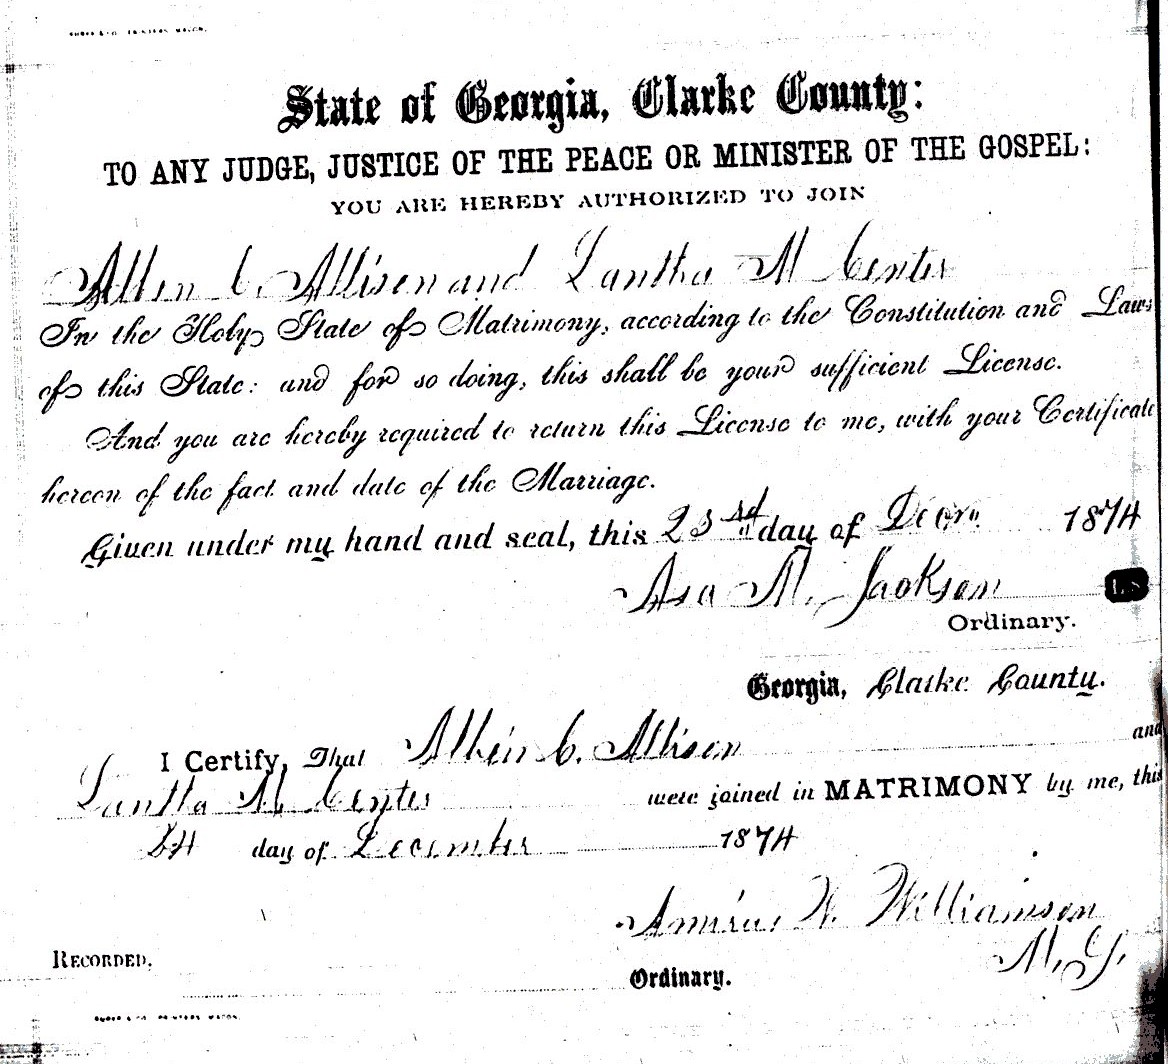 State of Georgia, Clarke County:
TO ANY JUDGE, JUSTICE OF THE PEACE OR MINISTER OF THE GOSPEL:
YOU ARE HEREBY AUTHORIZED TO JOIN
Allen C. Allison and Lantha M Center
In the Holy State of Matrimony, according to the Constitution and Laws
of this State: and for so doing, this shall be your sufficient License.
And you are hereby required to return this License to me, with your Certificate
hereon of the fact and date of the Marriage.
Given under my hand and seal, this 23rd day of Decr. 1874
Asa M. Jackson L.S.
Ordinary.
Georgia, Clarke County.
I Certify, That Allen C. Allison and
Lantha M Center were joined in MATRIMONY by me, this
24 day of December 1874
W. Williamson
M. G.
RECORDED.
Ordinary.